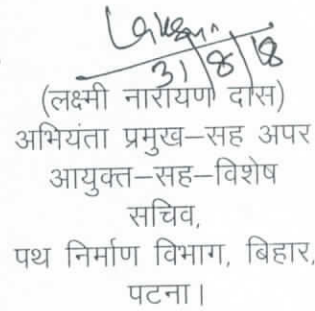 Lakshmi
31/8/18
(लक्ष्मी नारायण दास)
अभियंता प्रमुख–सह अपर
आयुक्त–सह–विशेष
सचिव,
पथ निर्माण विभाग, बिहार,
पटना।